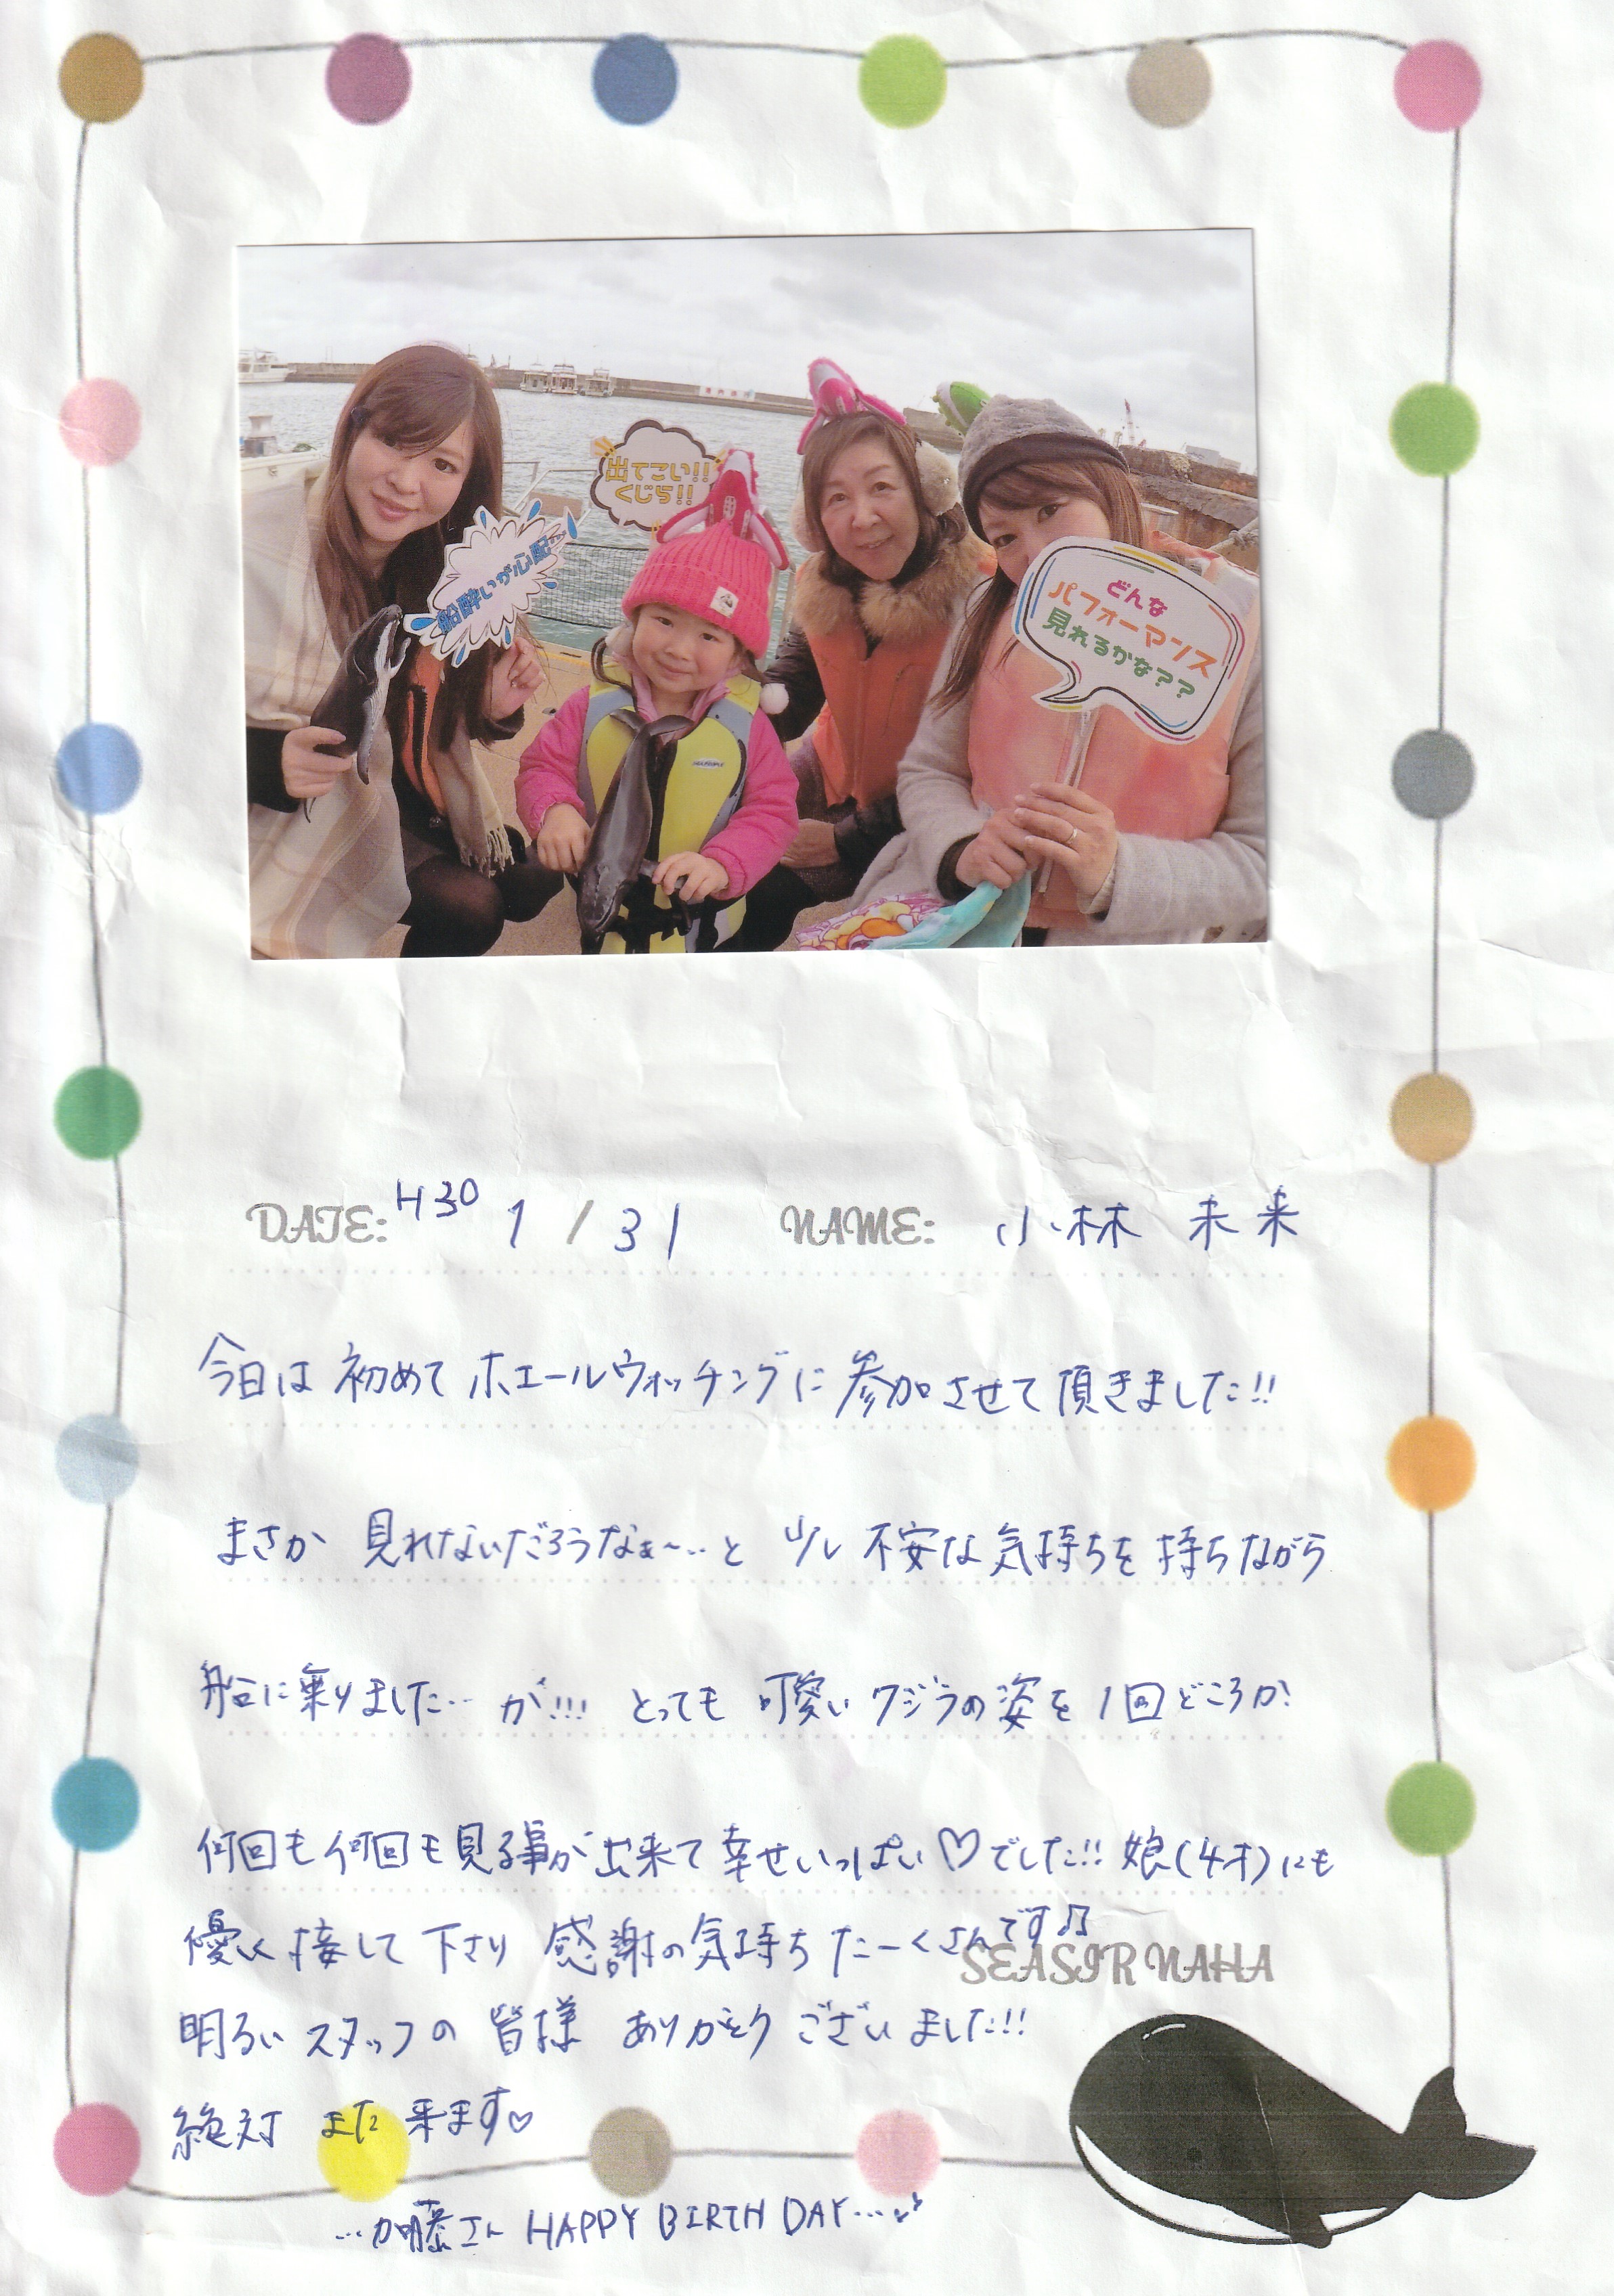 出てこい!!
くじら!!
船酔いが心配…
どんな
パフォーマンス
見れるかな??
DATE: H30 1/31 NAME: 小林 未来
今日は初めてホエールウォッチングに参加させて頂きました!!
まさか 見れないだろうなぁ〜…と 少し不安な気持ちを持ちながら
船に乗りました… が!!! とっても 可愛いクジラの姿を1回どころか
何回も何回も見る事が出来て幸せいっぱい♡でした!! 娘(4才)にも
優しく接して下さり 感謝の気持ちたーくさんです♫
SEASIR NAHA
明るいスタッフの 皆様 ありがとうございました!!
絶対 また来ます♡
…加藤さん HAPPY BIRTH DAY…♪